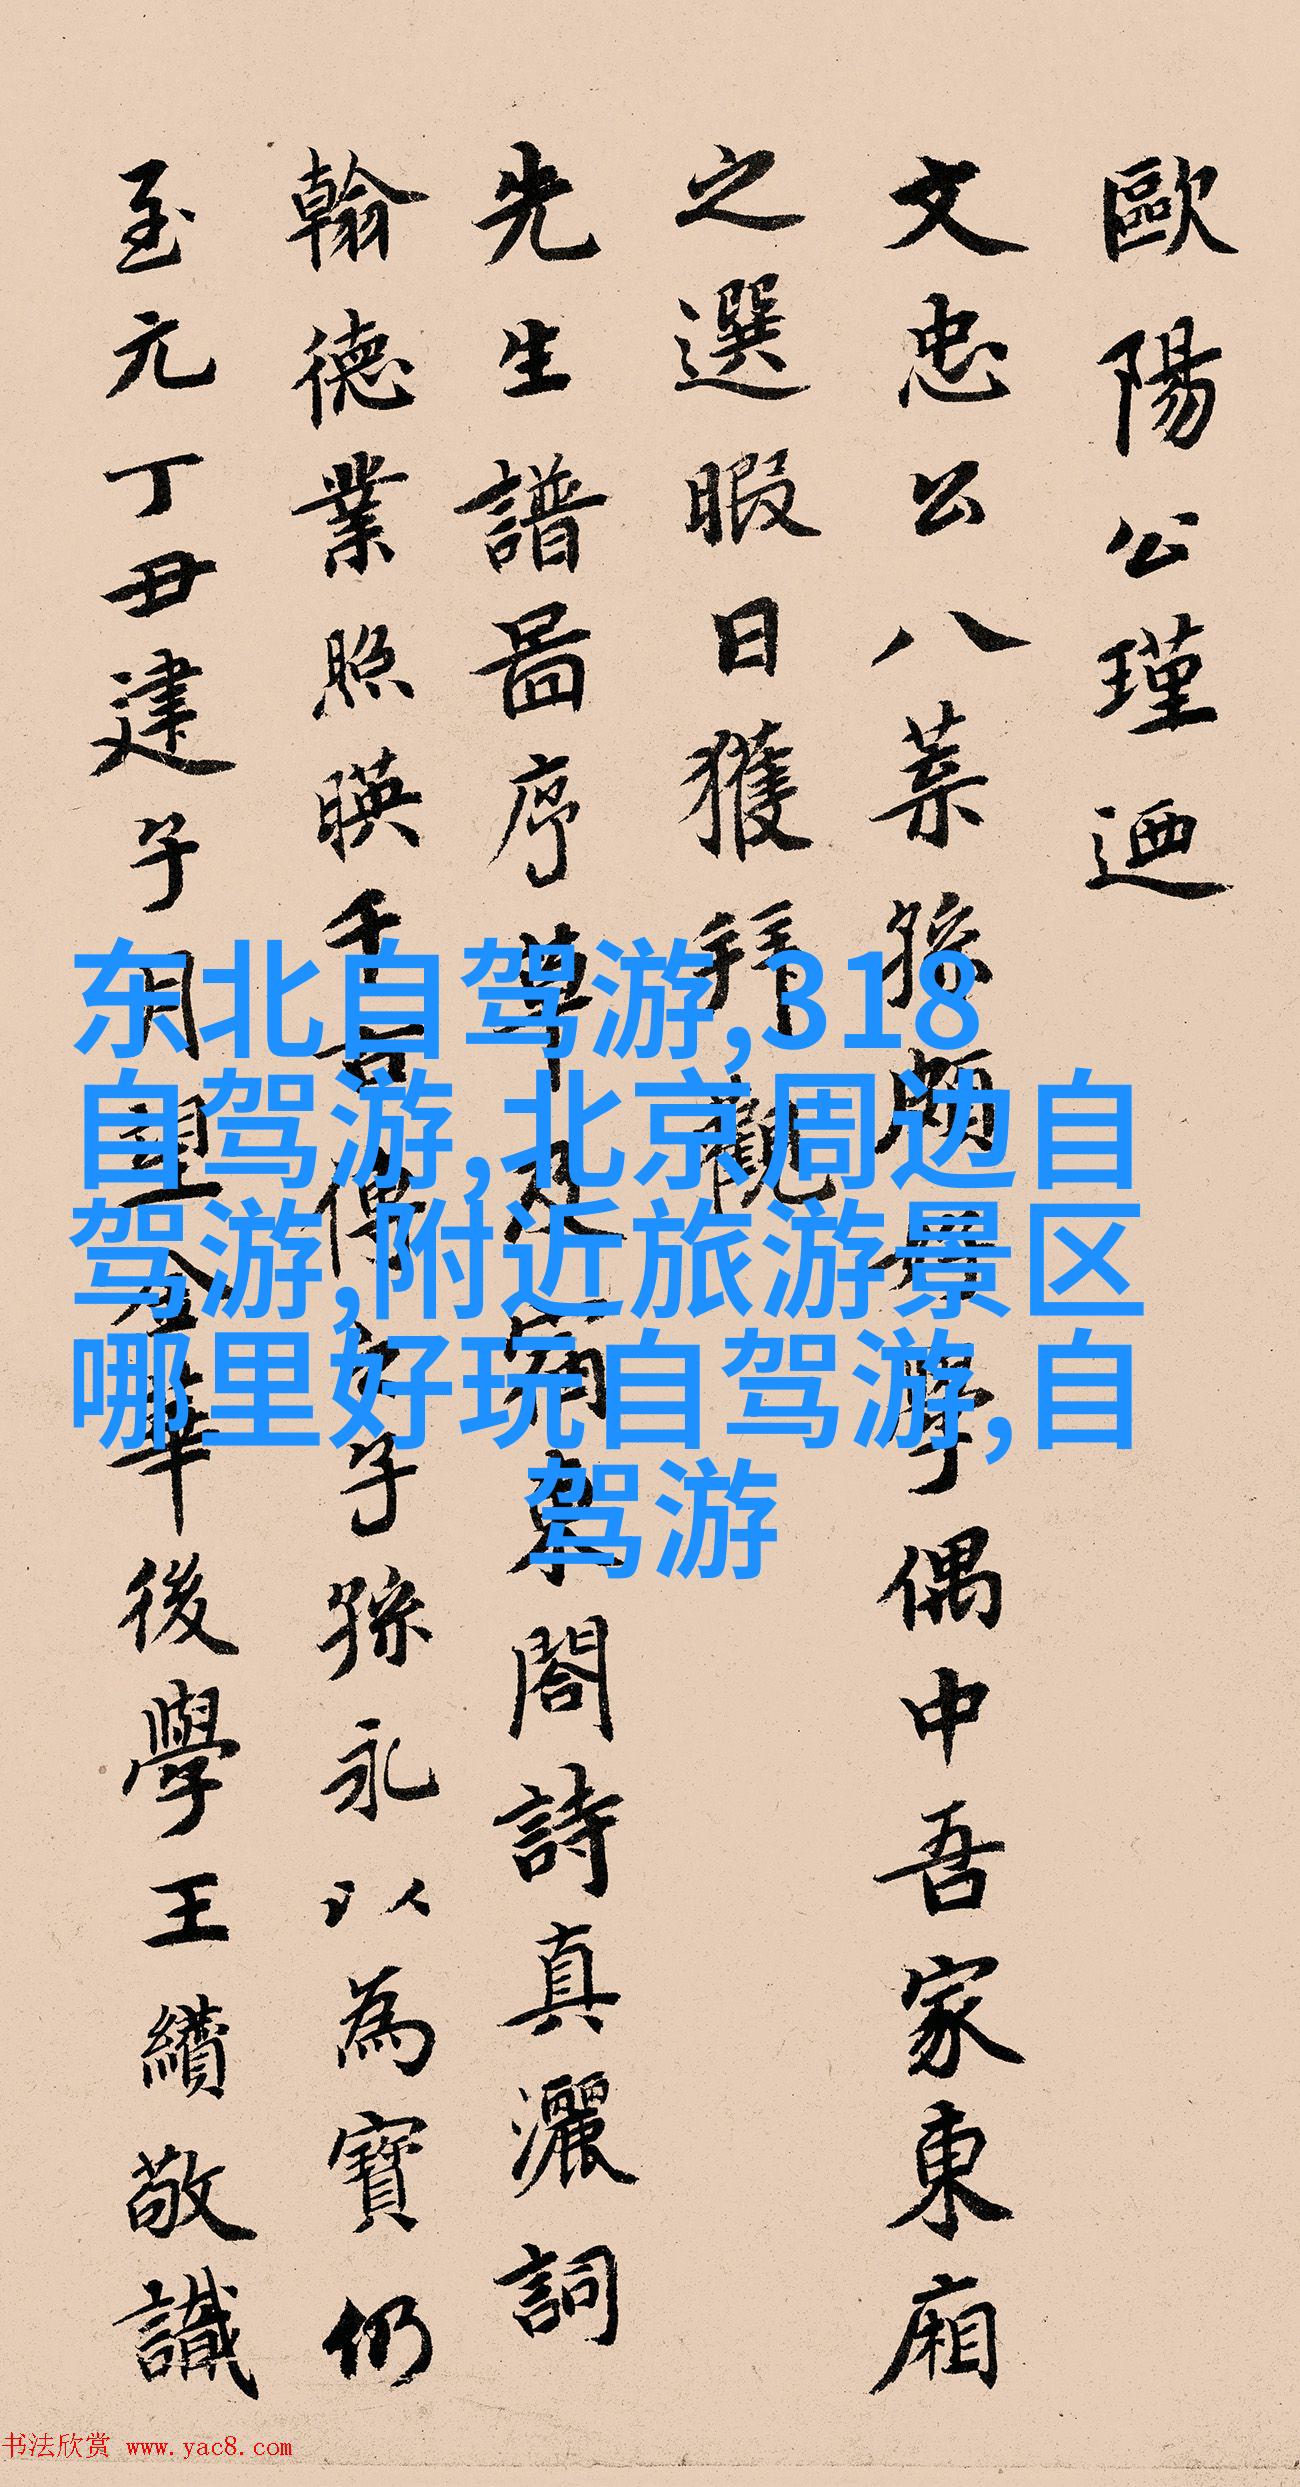 歐陽公瑾迺
文忠公八葉孫頗好學偶中吾家東廂
之選暇日獲拜觀
先生譜圖序草及病東閣詩真灑詞
翰德業照暎千古傳之子孫永以為寶仍
至元丁丑建子月望金華後學王纘敬識
东北自驾游,318
自驾游,北京周边自
驾游,附近旅游景区
哪里好玩自驾游,自
驾游
书法欣赏 www.yac8.com